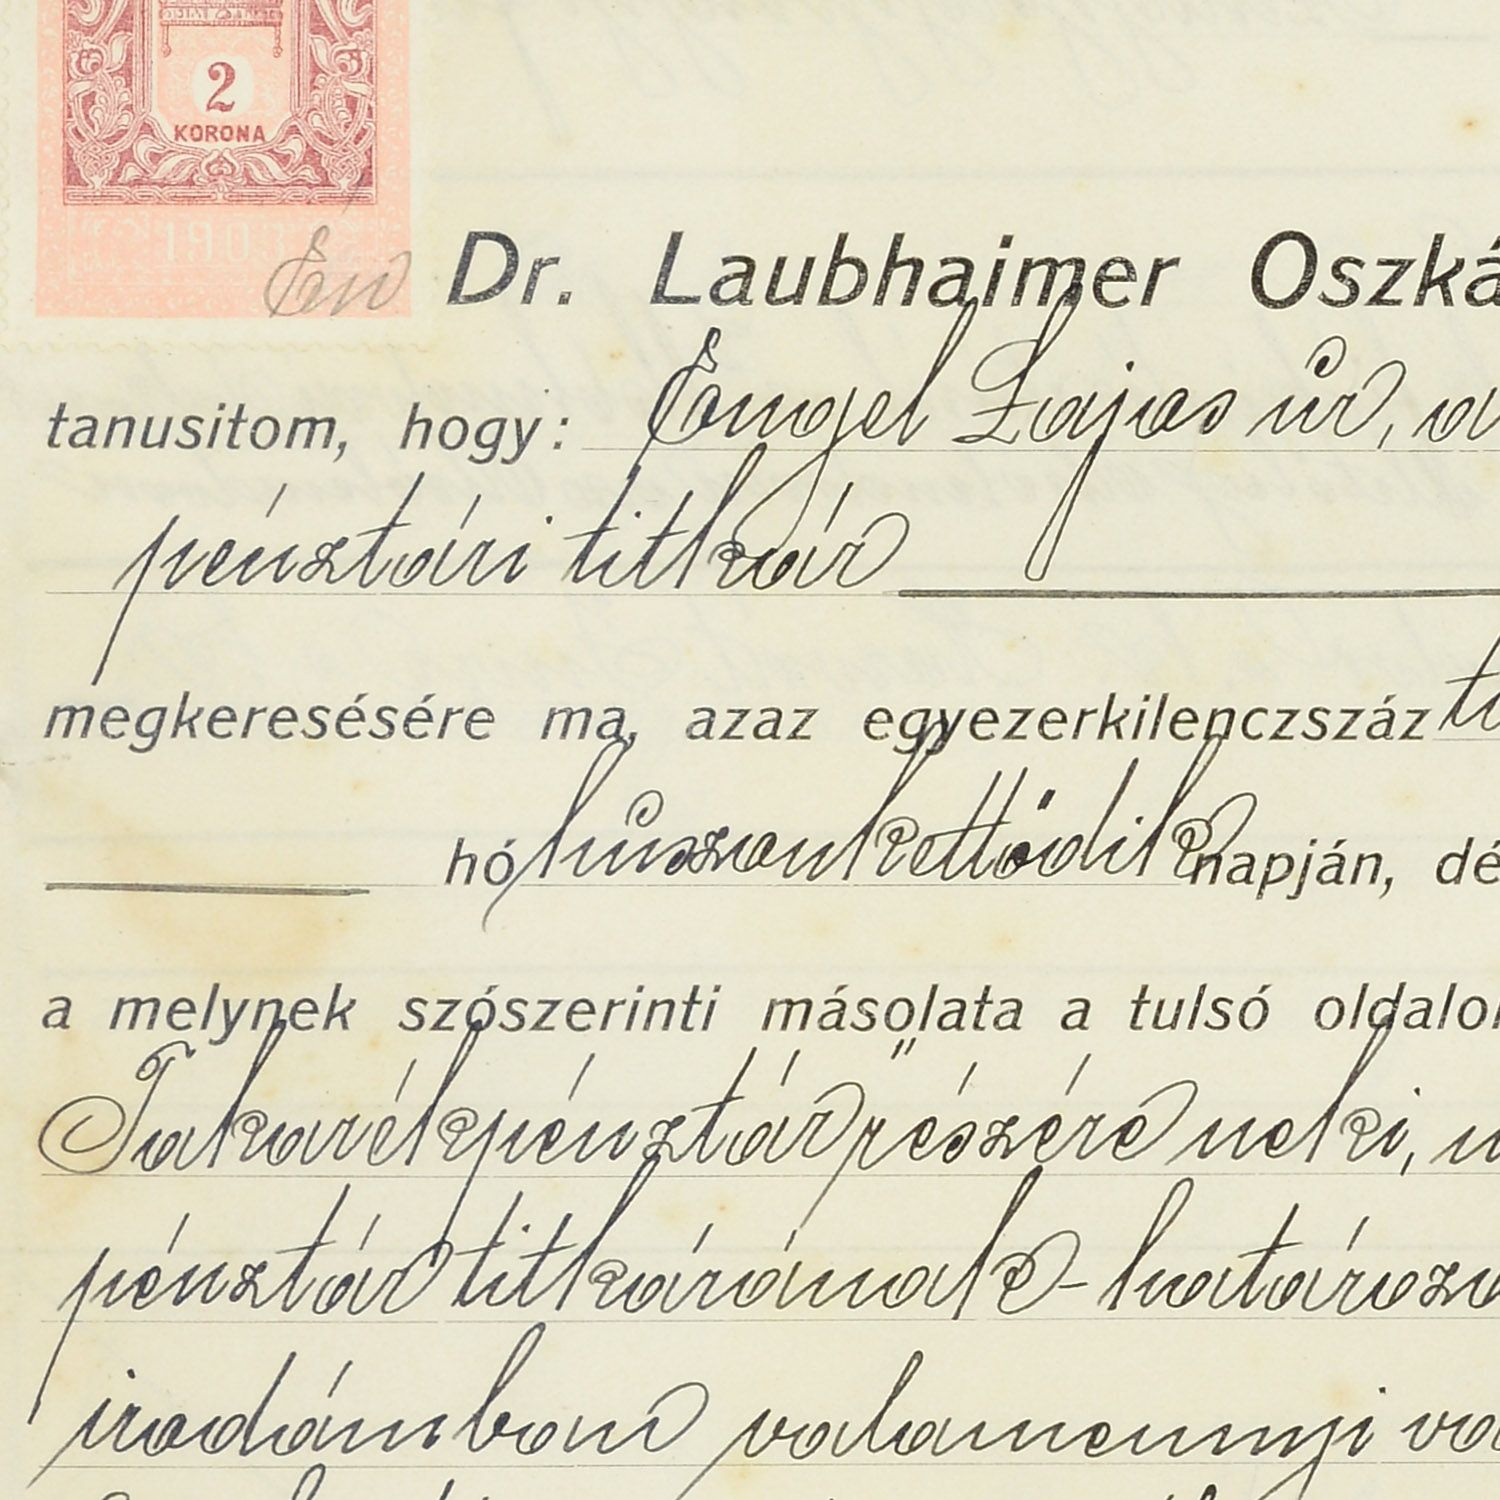 2
KORONA
1903
Én Dr. Laubhaimer Oszká
tanusitom, hogy: Engel Lajos úr, a
pénztári titkár
megkeresésére ma, azaz egyezerkilenczszáz ti
hó huszonkettödik napján, dé
a melynek szószerinti másolata a tulsó oldalon
Takarékpénztár részére neki, m
pénztár titkárának - határoza
irodámban valamennyi va